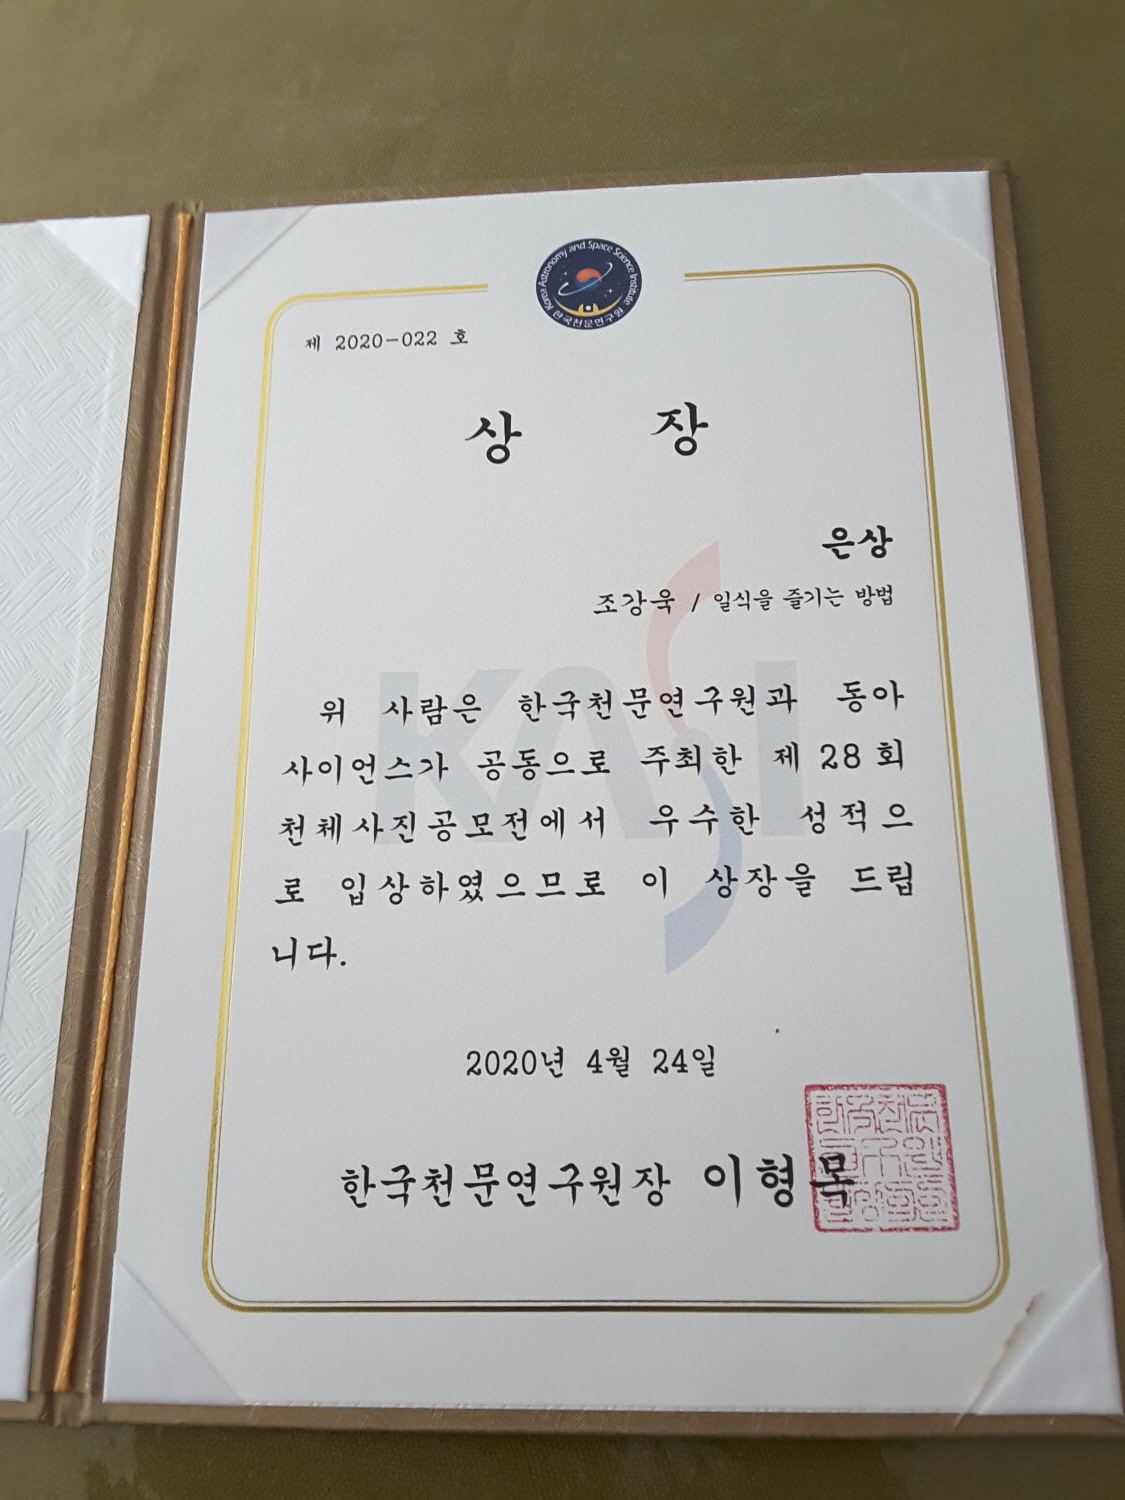 Korea Astronomy and Space Science Institute
한국천문연구원
제 2020-022 호
상 장
은상
조강욱 / 일식을 즐기는 방법
KASI
위 사람은 한국천문연구원과 동아
사이언스가 공동으로 주최한 제 28 회
천체사진공모전에서 우수한 성적으
로 입상하였으므로 이 상장을 드립
니다.
2020년 4월 24일
한국천문연구원장 이형목